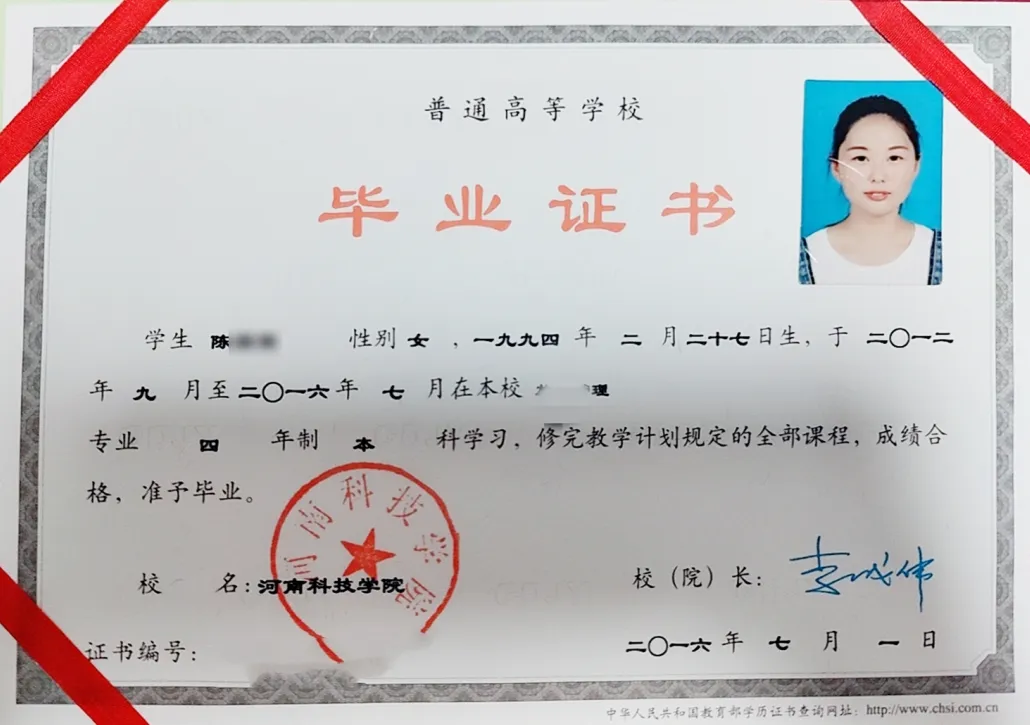 普通高等学校
毕业证书
学生 陈 性别 女 ，一九九四 年 二 月二十七日生，于 二〇一二
年 九 月至二〇一六年 七 月在本校 理
专业 四 年制 本 科学习，修完教学计划规定的全部课程，成绩合
格，准予毕业。
河南科技学院
校 名：河南科技学院 校（院）长： 李成伟
证书编号： 二〇一六年 七 月 一 日
中华人民共和国教育部学历证书查询网址：http://www.chsi.com.cn